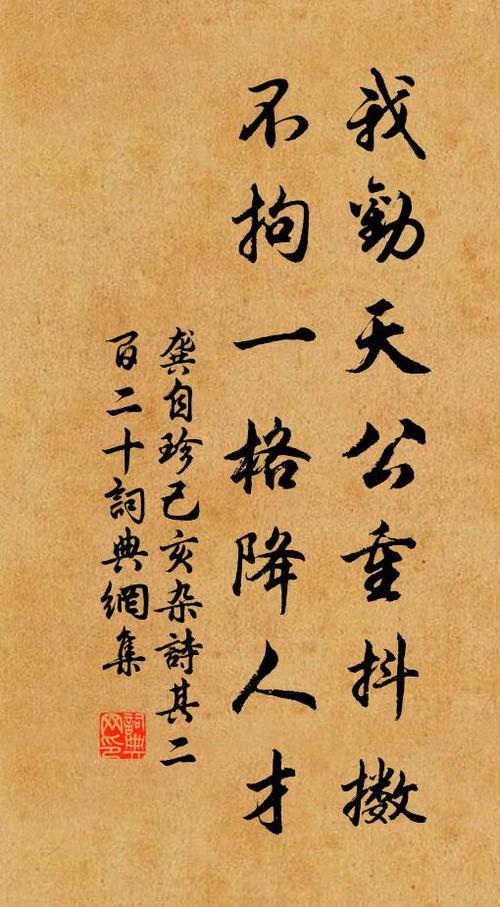 我勸天公重抖擻
不拘一格降人才
龔自珍己亥杂詩其二
百二十詞典網集
詞典网印